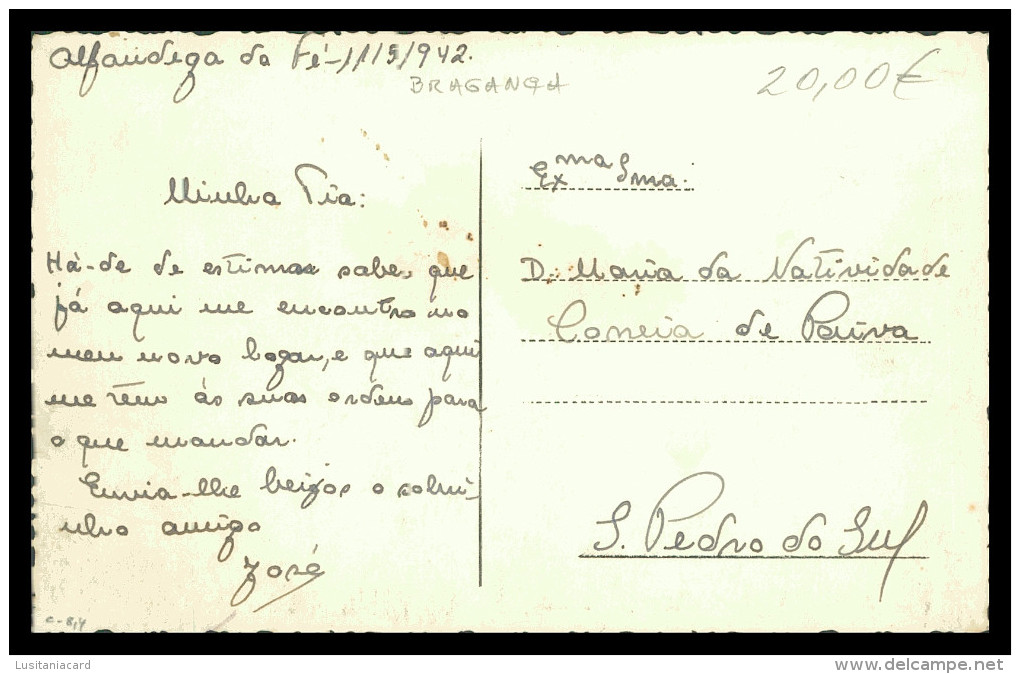 Alfandega da Fé-1/15/942.
BRAGANÇA
20,00€
Minha Tia:
Há-de de estimar saber que
já aqui me encontro no
meu novo logar, e que aqui
me têm ás suas ordens para
o que mandar.
Envia-lhe beijos o sobri-
nho amigo
José
Exma Sma.
D. Maria da Natividade
Correia de Paiva
S. Pedro do Sul
c-8,4
Lusitaniacard
www.delcampe.net